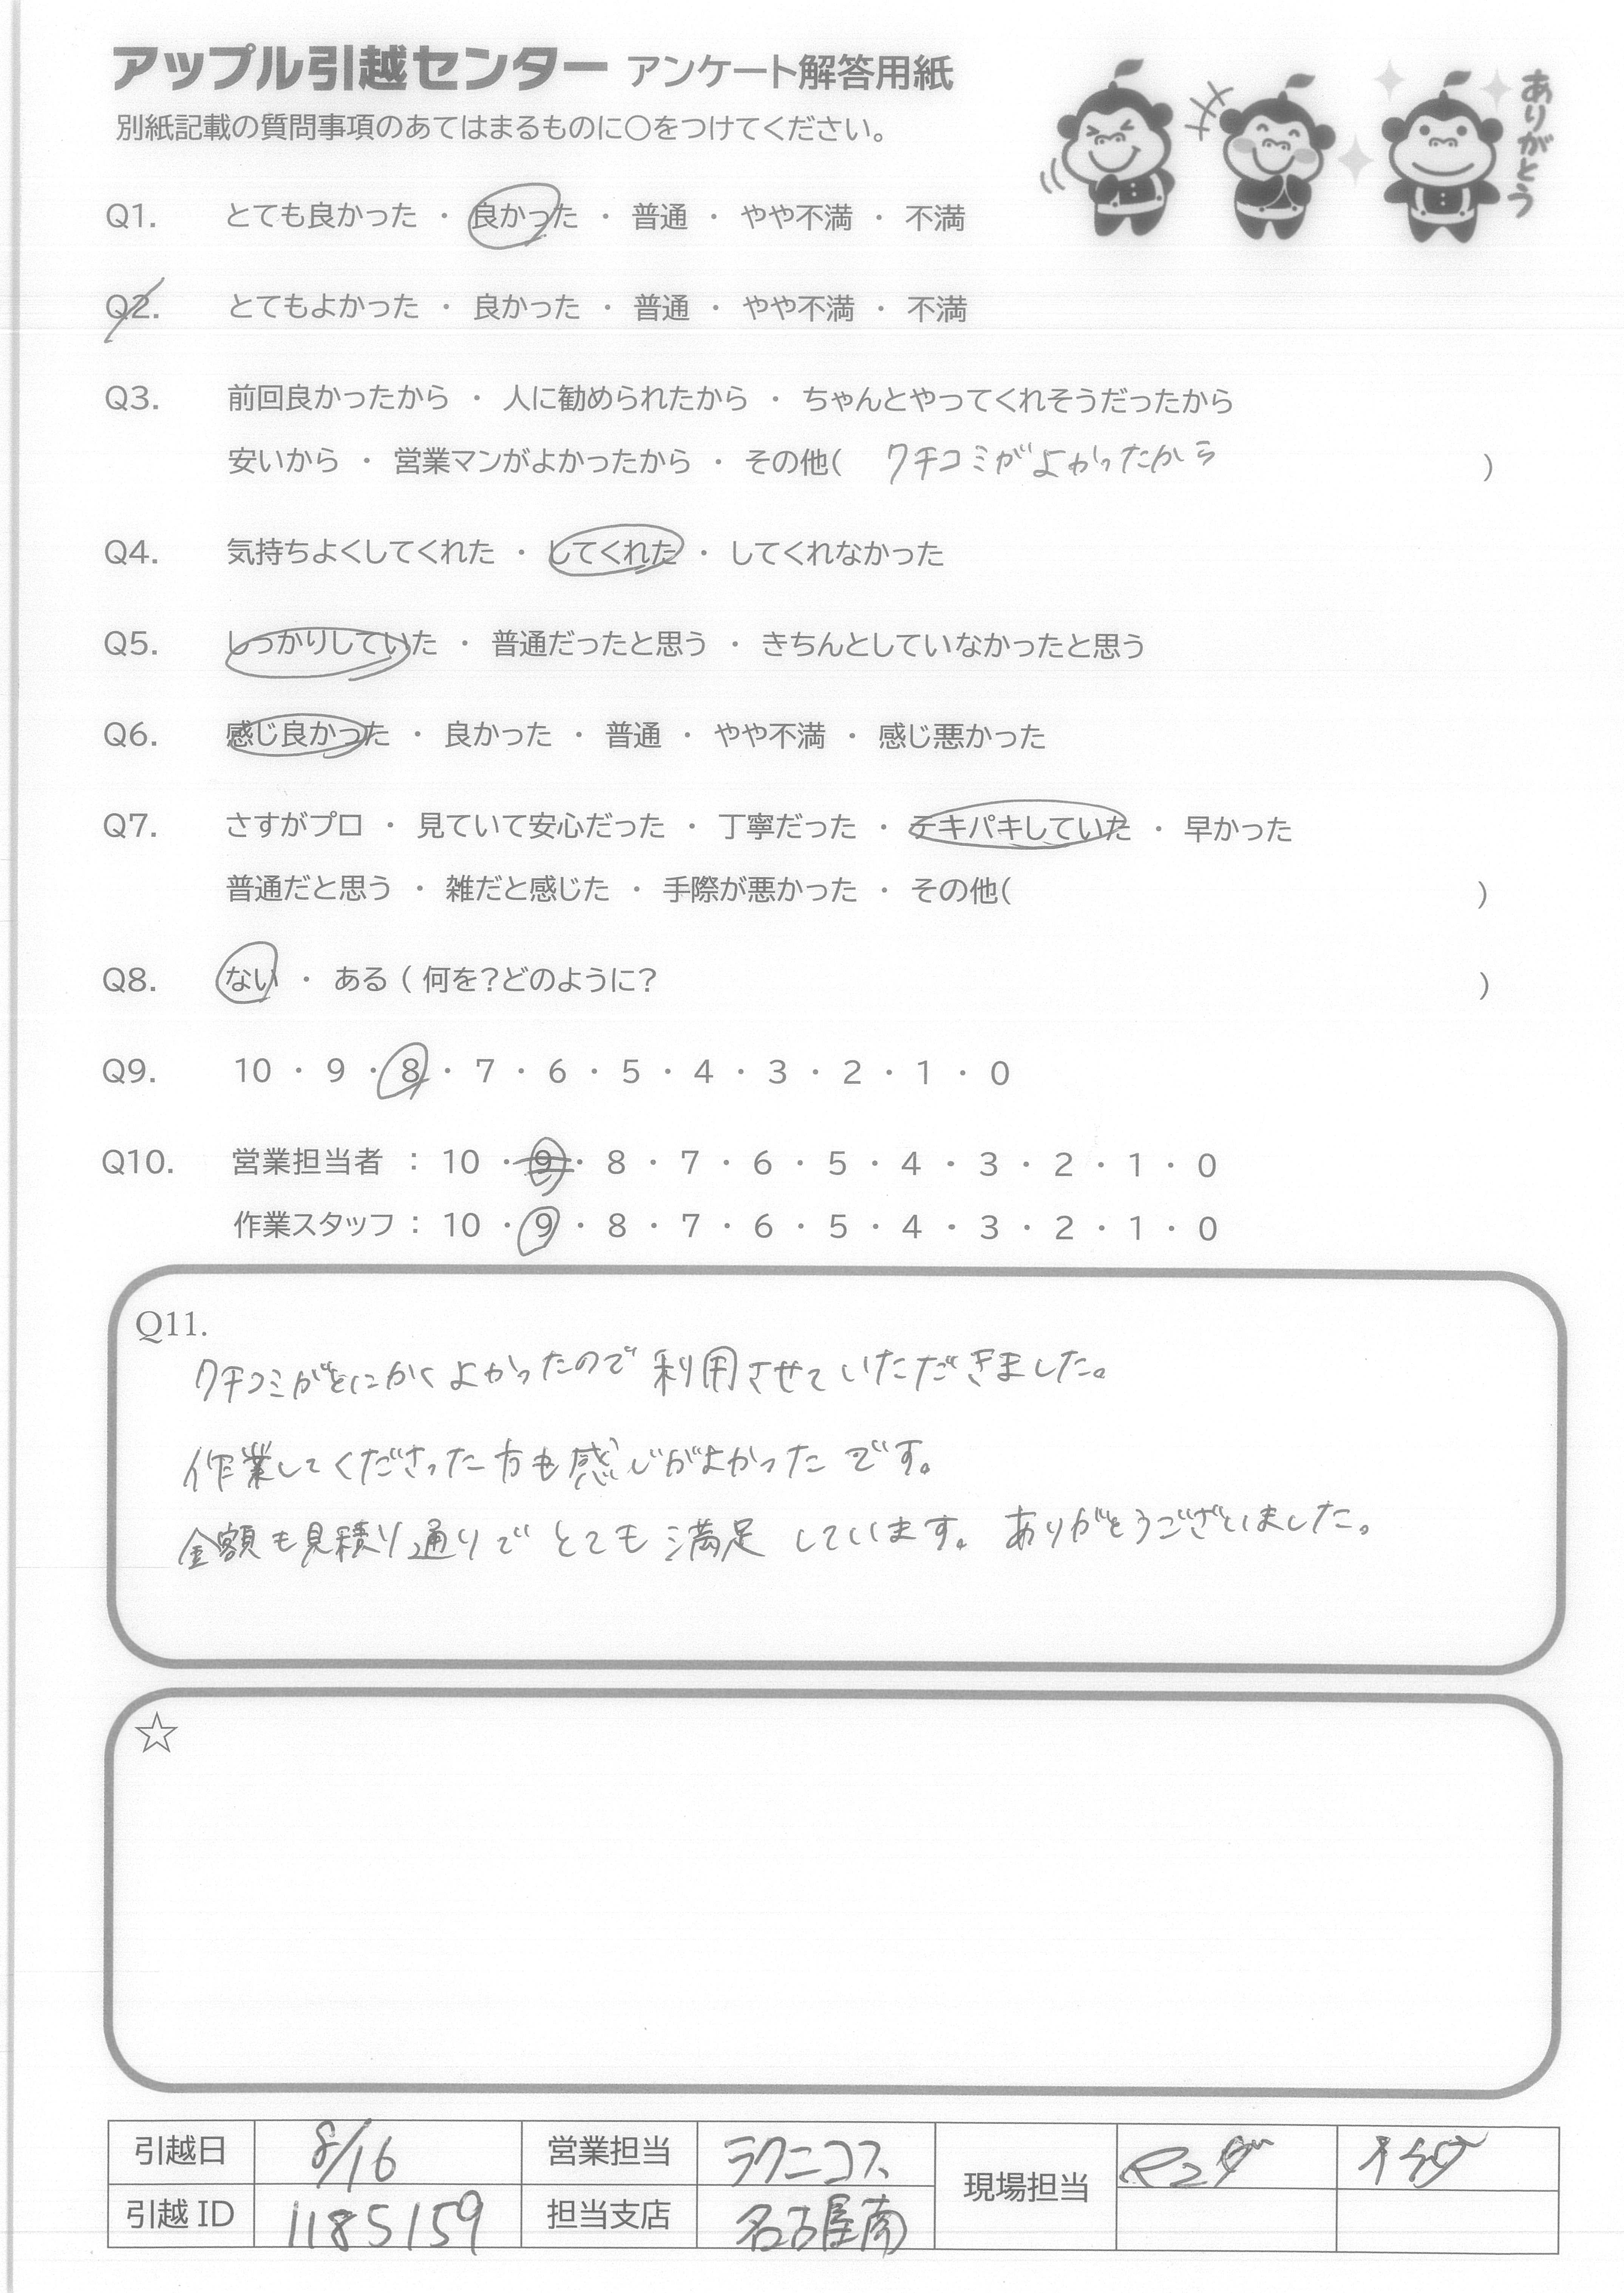 アップル引越センター アンケート解答用紙
別紙記載の質問事項のあてはまるものに〇をつけてください。
ありがとう
Q1. とても良かった ・ 良かった ・ 普通 ・ やや不満 ・ 不満
Q2. とてもよかった ・ 良かった ・ 普通 ・ やや不満 ・ 不満
Q3. 前回良かったから ・ 人に勧められたから ・ ちゃんとやってくれそうだったから
安いから ・ 営業マンがよかったから ・ その他( クチコミがよかったから )
Q4. 気持ちよくしてくれた ・ してくれた ・ してくれなかった
Q5. しっかりしていた ・ 普通だったと思う ・ きちんとしていなかったと思う
Q6. 感じ良かった ・ 良かった ・ 普通 ・ やや不満 ・ 感じ悪かった
Q7. さすがプロ ・ 見ていて安心だった ・ 丁寧だった ・ テキパキしていた ・ 早かった
普通だと思う ・ 雑だと感じた ・ 手際が悪かった ・ その他( )
Q8. ない ・ ある ( 何を?どのように? )
Q9. 10 ・ 9 ・ 8 ・ 7 ・ 6 ・ 5 ・ 4 ・ 3 ・ 2 ・ 1 ・ 0
Q10. 営業担当者 : 10 ・ 9 ・ 8 ・ 7 ・ 6 ・ 5 ・ 4 ・ 3 ・ 2 ・ 1 ・ 0
作業スタッフ : 10 ・ 9 ・ 8 ・ 7 ・ 6 ・ 5 ・ 4 ・ 3 ・ 2 ・ 1 ・ 0
Q11.
クチコミがとにかくよかったので利用させていただきました。
作業してくださった方も感じがよかったです。
金額も見積り通りでとても満足しています。ありがとうございました。
☆
引越日 8/16 営業担当 ラクニコス 現場担当
引越ID 1185159 担当支店 名古屋南